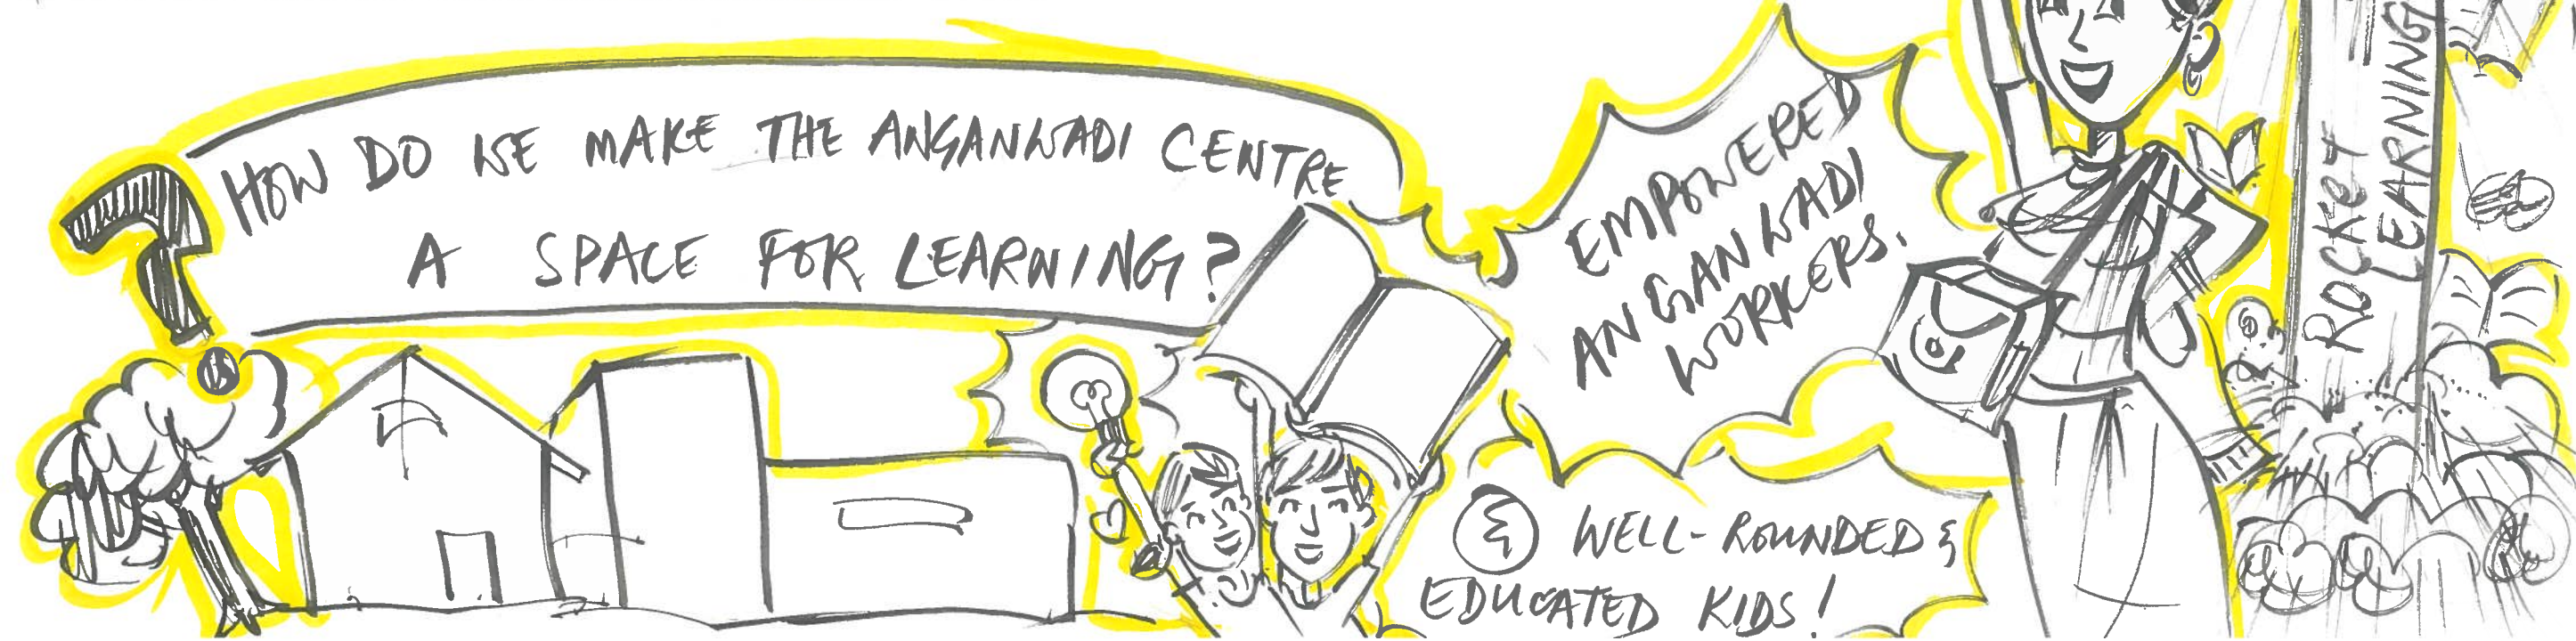 HOW DO WE MAKE THE ANGANWADI CENTRE
A SPACE FOR LEARNING?
EMPOWERED
ANGANWADI
WORKERS.
& WELL-ROUNDED &
EDUCATED KIDS!
ROCKET
LEARNING